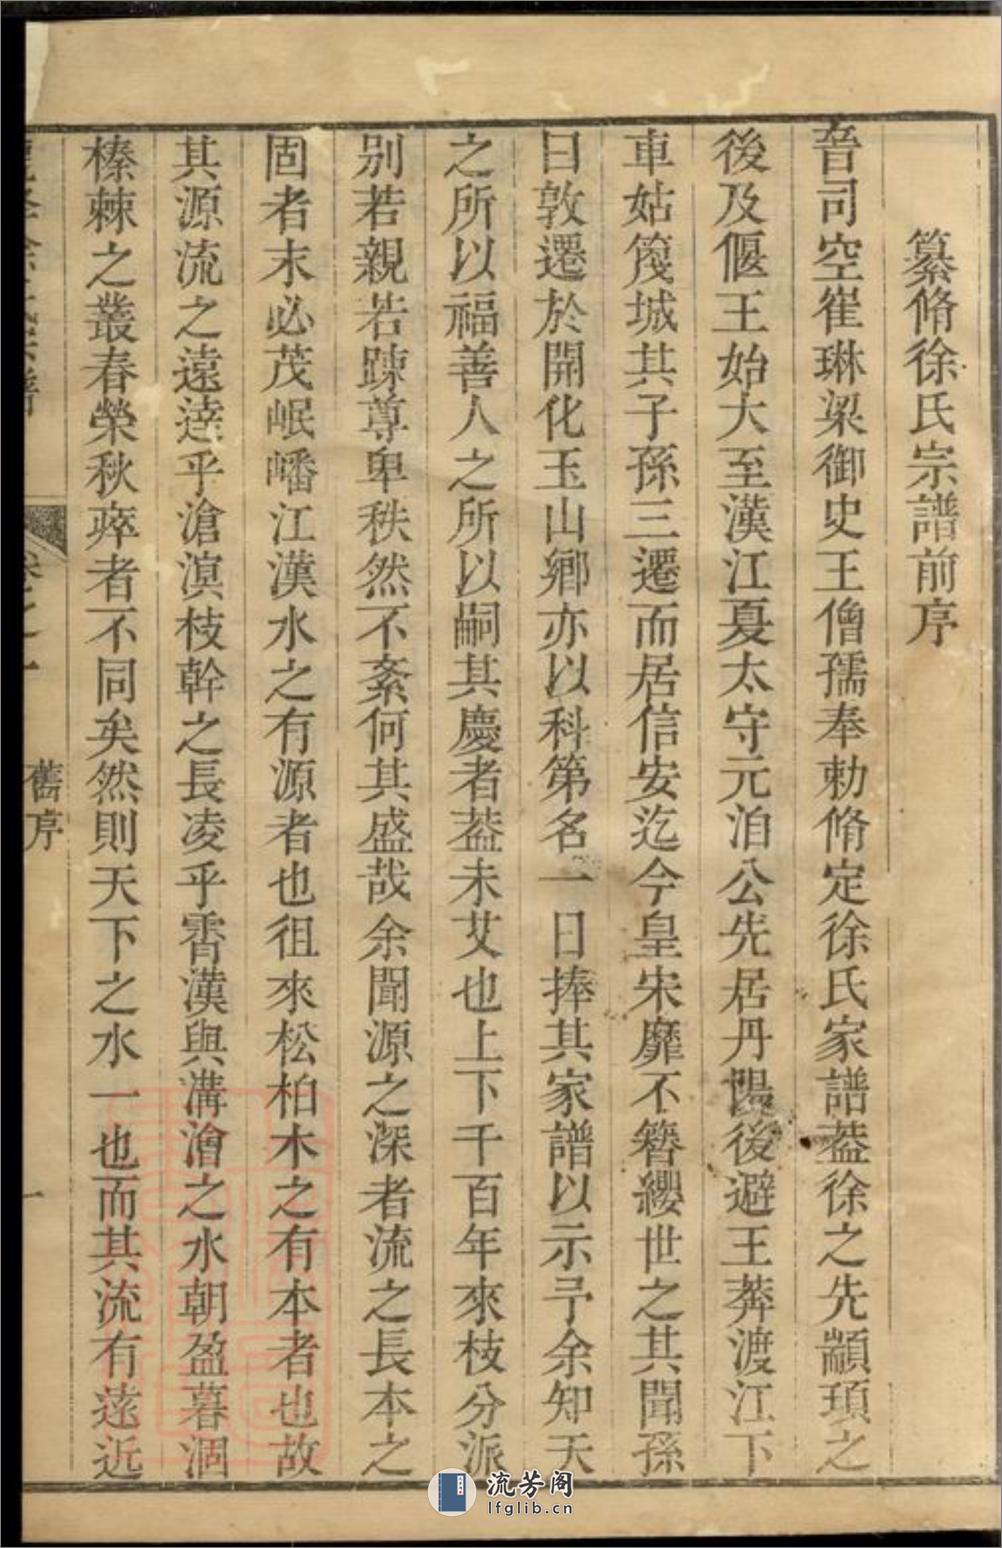 纂脩徐氏宗譜前序
晉司空崔琳梁御史王僧孺奉勅脩定徐氏家譜葢徐之先顓頊之
後及偃王始大至漢江夏太守元洎公先居丹陽後避王莾渡江下
車姑篾城其子孫三遷而居信安迄今皇宋靡不簪纓世之其聞孫
曰敦遷於開化玉山鄉亦以科第名一日捧其家譜以示予余知天
之所以福善人之所以嗣其慶者葢未艾也上下千百年來枝分派
別若親若踈尊卑秩然不紊何其盛哉余聞源之深者流之長本之
固者末必茂岷嶓江漢水之有源者也徂來松柏木之有本者也故
其源流之遠逹乎滄溟枝幹之長凌乎霄漢與溝澮之水朝盈暮涸
榛棘之叢春榮秋瘁者不同矣然則天下之水一也而其流有遠近
卷之一
舊序
一
流芳阁
lfglib.cn